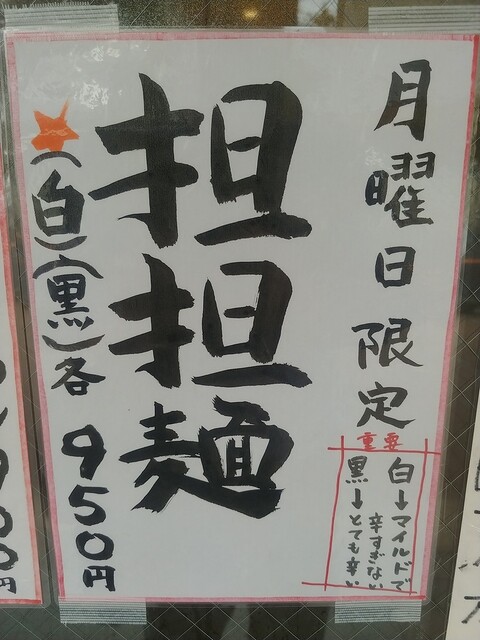 月曜日限定
重要
白→マイルドで
辛すぎない
黒→とても辛い
担担麺
★(白)(黒)各950円